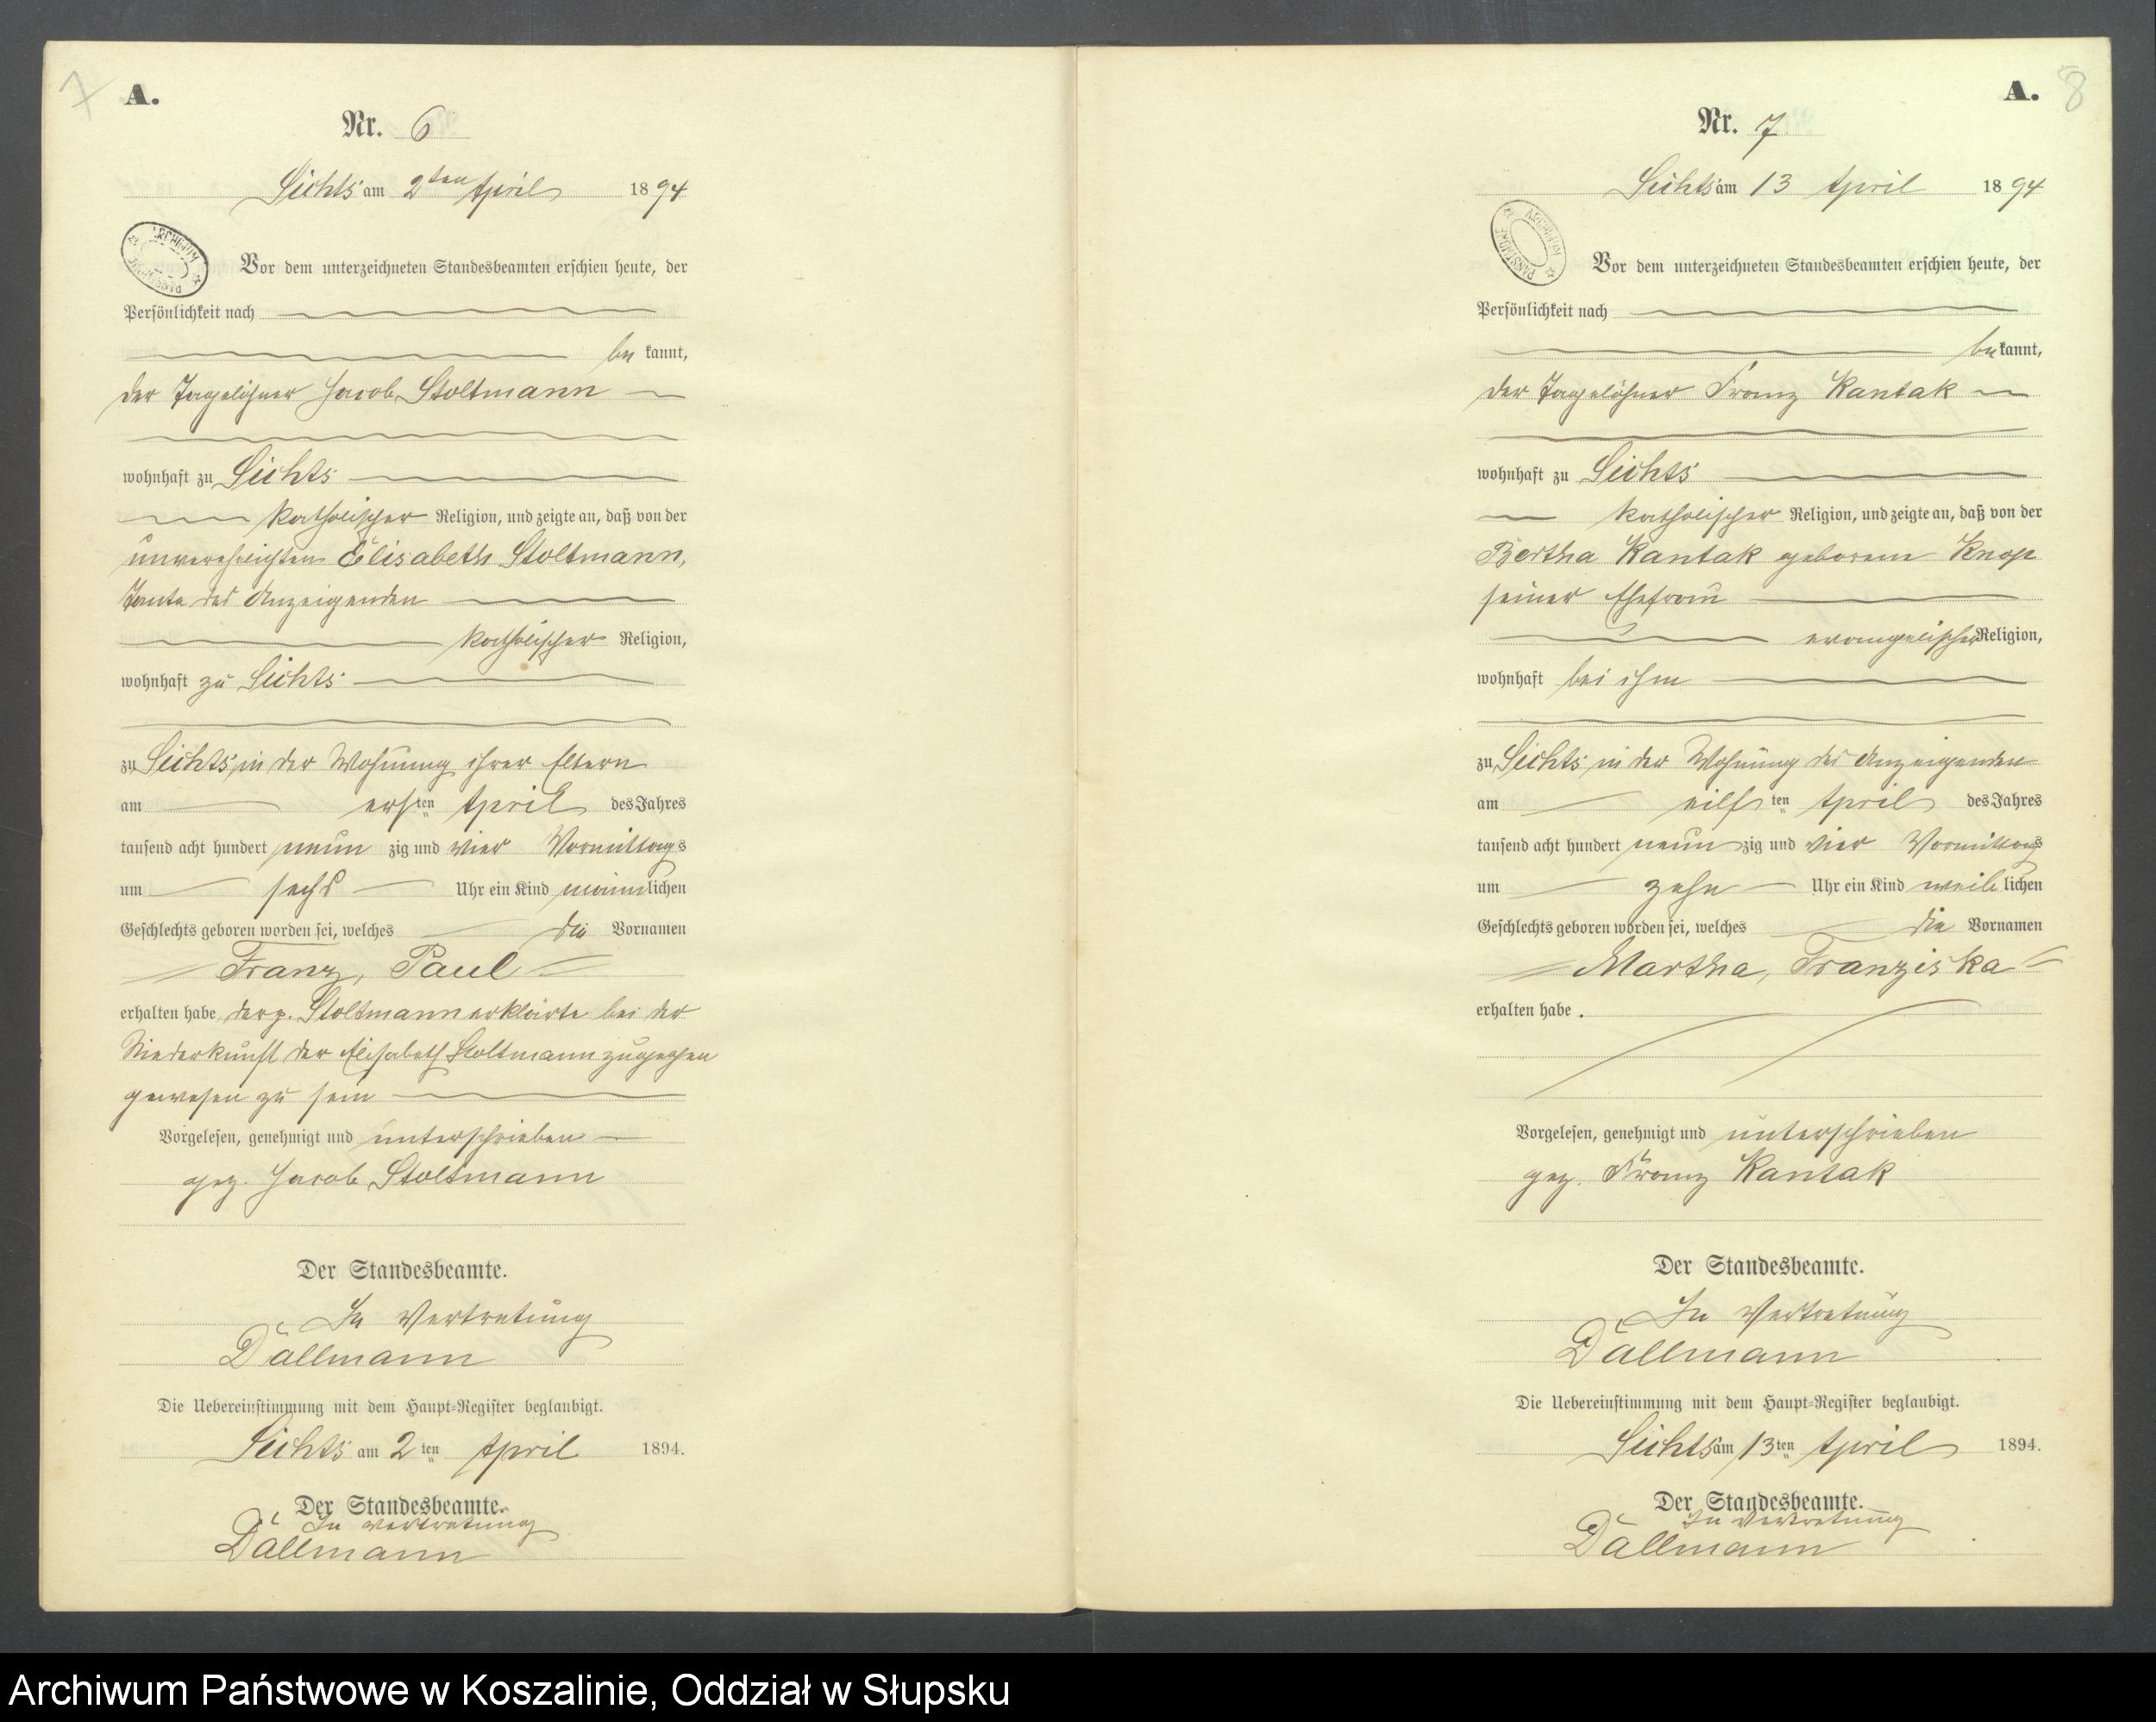 7
A.
Nr. 6
Lichts am 2ten April 1894
Vor dem unterzeichneten Standesbeamten erschien heute, der
Persönlichkeit nach
be kannt,
der Tagelöhner Jacob Stoltmann
wohnhaft zu Lichts
katholischer Religion, und zeigte an, daß von der
unverehelichten Elisabeth Stoltmann,
Tante des Anzeigenden
katholischer Religion,
wohnhaft zu Lichts
zu Lichts in der Wohnung ihrer Eltern
am ersten April des Jahres
tausend acht hundert neun zig und vier Vormittags
um sechs Uhr ein Kind männlichen
Geschlechts geboren worden sei, welches die Vornamen
Franz, Paul
erhalten habe, der p. Stoltmann erklärte bei der
Niederkunft der Elisabeth Stoltmann zugegen
gewesen zu sein
Vorgelesen, genehmigt und unterschrieben
gez. Jacob Stoltmann
Der Standesbeamte.
In Vertretung
Dallmann
Die Uebereinstimmung mit dem Haupt-Register beglaubigt.
Lichts am 2ten April 1894.
Der Standesbeamte.
In Vertretung
Dallmann
A. 8
Nr. 7
Lichts am 13 April 1894
ARCHIWUM PAŃSTWOWE
Vor dem unterzeichneten Standesbeamten erschien heute, der
Persönlichkeit nach
be kannt,
der Tagelöhner Franz Kantak
wohnhaft zu Lichts
katholischer Religion, und zeigte an, daß von der
Bertha Kantak geborene Knop
seiner Ehefrau
evangelischer Religion,
wohnhaft bei ihm
zu Lichts in der Wohnung des Anzeigenden
am eilften April des Jahres
tausend acht hundert neun zig und vier Vormittags
um zehn Uhr ein Kind weiblichen
Geschlechts geboren worden sei, welches die Vornamen
Martha, Franziska
erhalten habe.
Vorgelesen, genehmigt und unterschrieben
gez. Franz Kantak
Der Standesbeamte.
In Vertretung
Dallmann
Die Uebereinstimmung mit dem Haupt-Register beglaubigt.
Lichts am 13ten April 1894.
Der Standesbeamte.
In Vertretung
Dallmann
Archiwum Państwowe w Koszalinie, Oddział w Słupsku